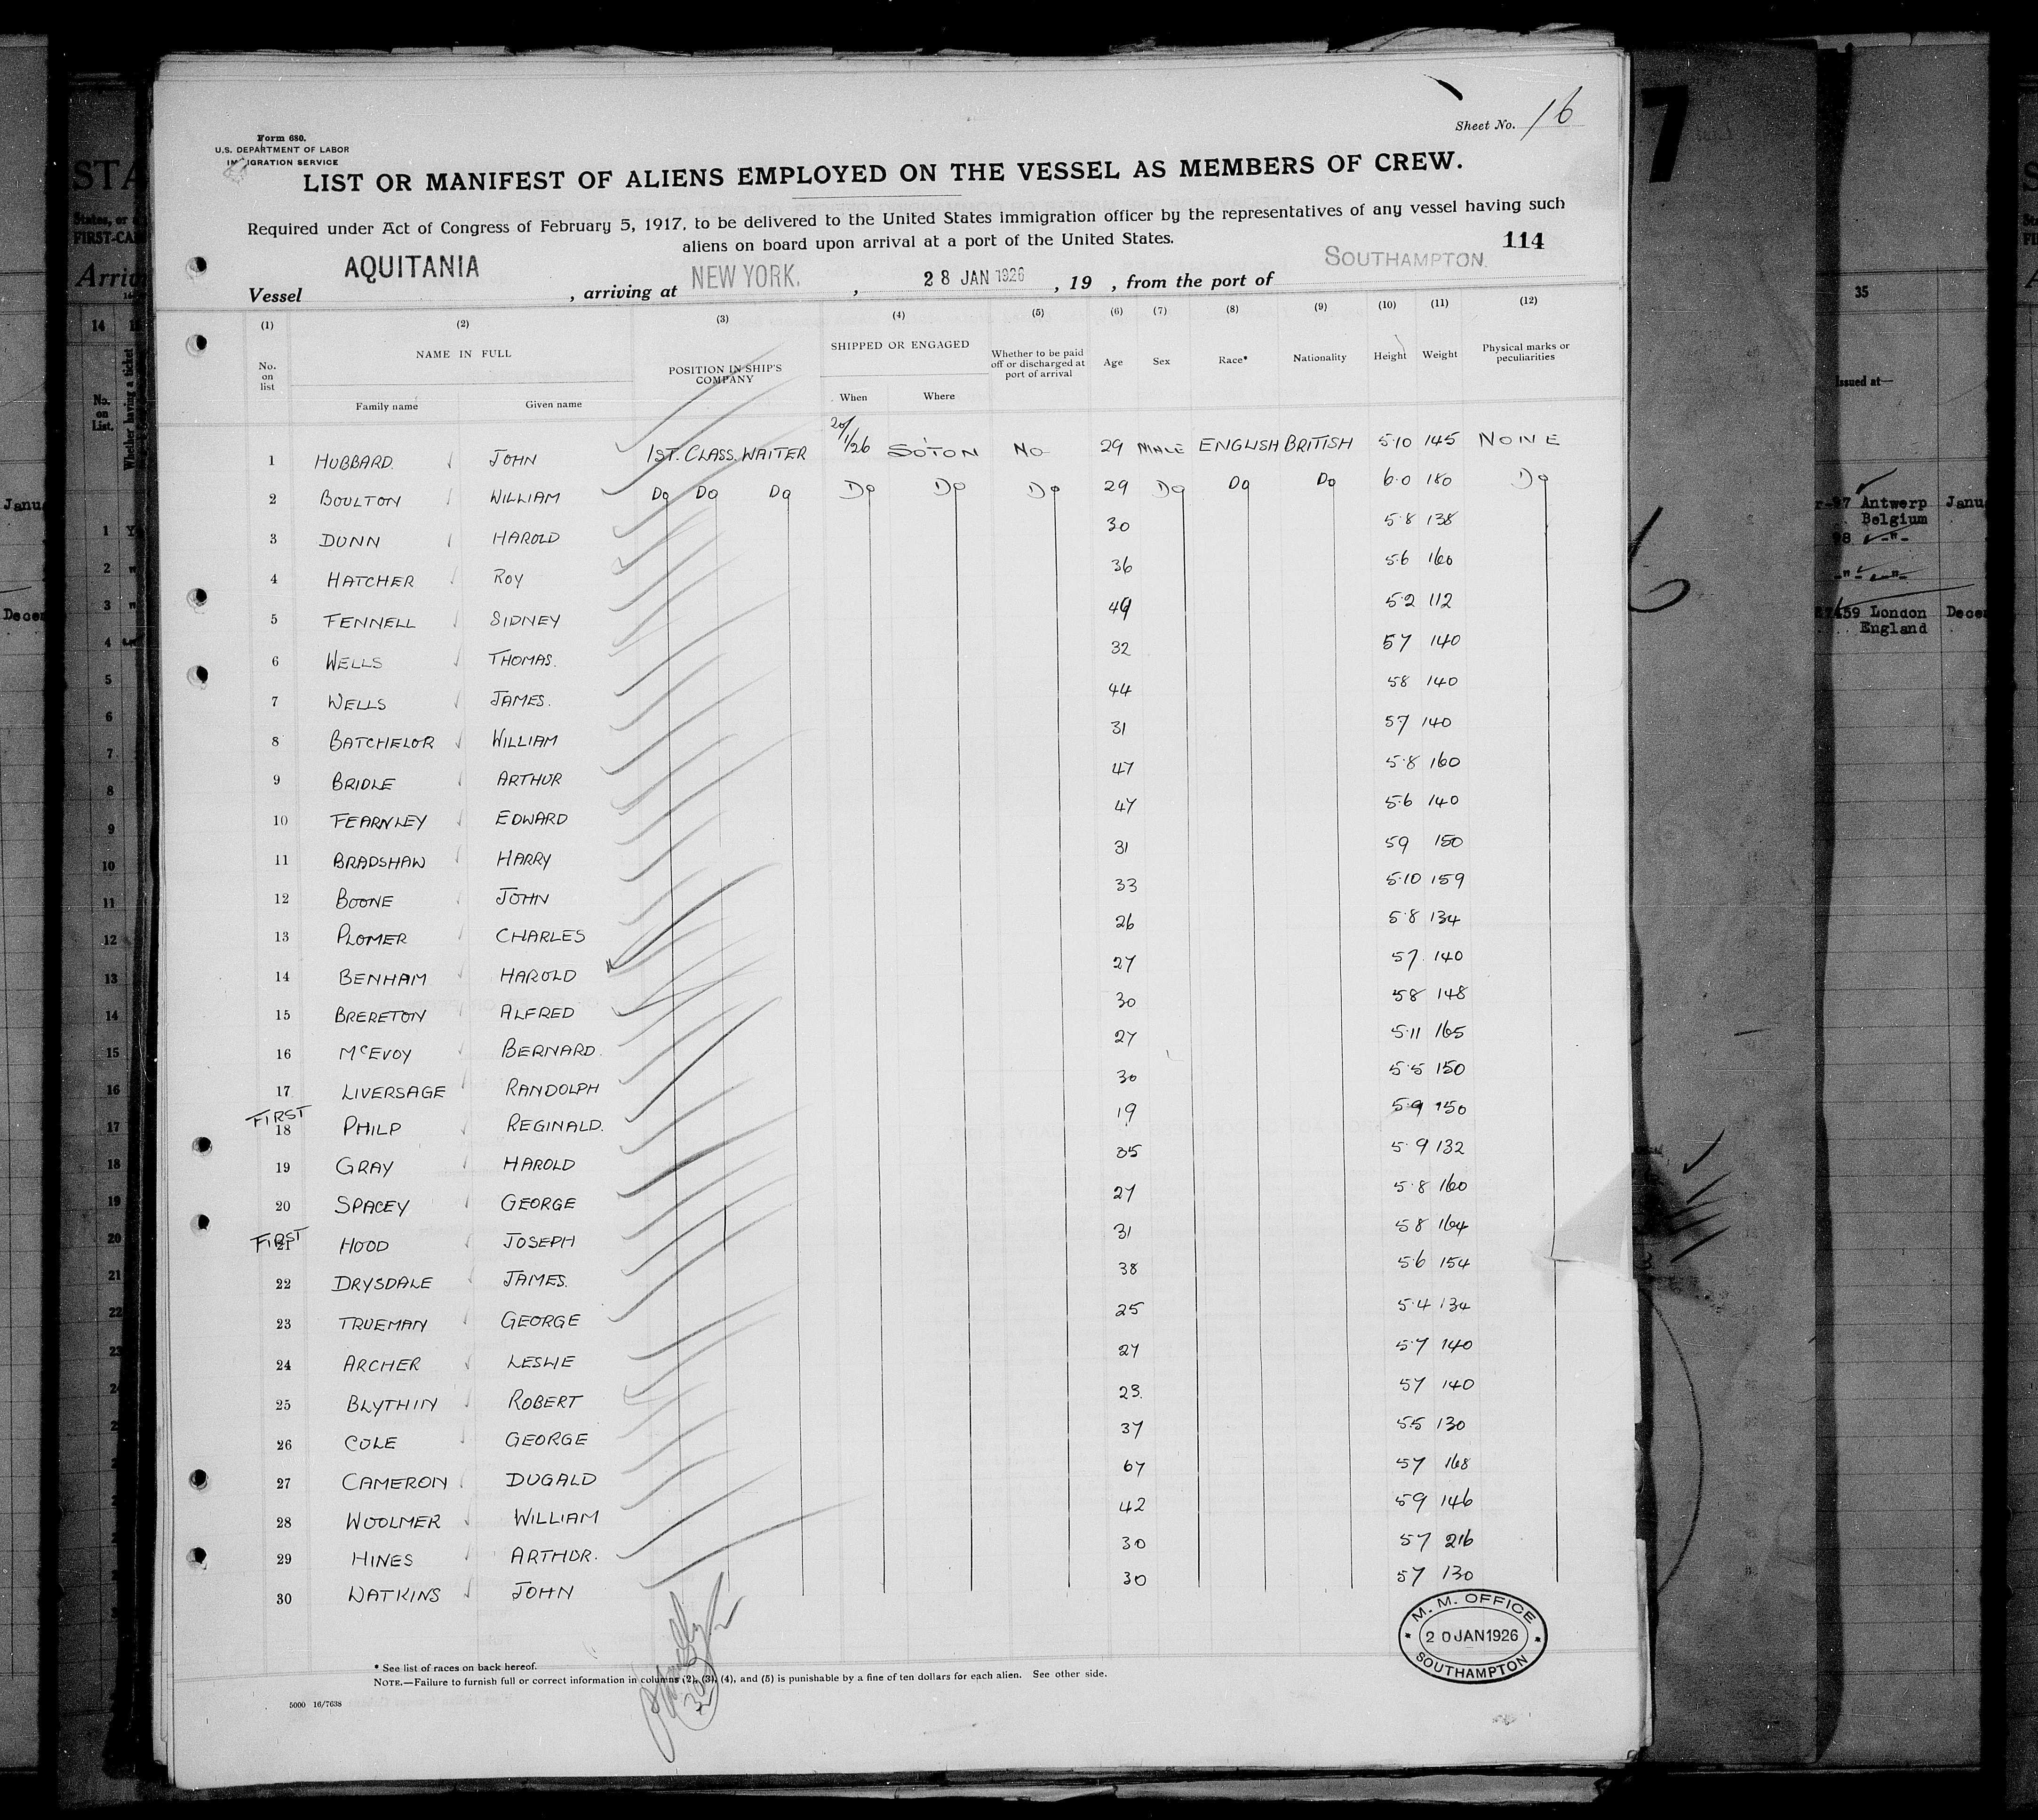 Sheet No. 16
Form 680.
U.S. DEPARTMENT OF LABOR
IMMIGRATION SERVICE
LIST OR MANIFEST OF ALIENS EMPLOYED ON THE VESSEL AS MEMBERS OF CREW.
Required under Act of Congress of February 5, 1917, to be delivered to the United States immigration officer by the representatives of any vessel having such
aliens on board upon arrival at a port of the United States.
114
Vessel AQUITANIA, arriving at NEW YORK., 28 JAN 1926, 19 , from the port of SOUTHAMPTON.
(1) (2) (3) (4) (5) (6) (7) (8) (9) (10) (11) (12)
No. on list NAME IN FULL Family name Given name POSITION IN SHIP'S COMPANY SHIPPED OR ENGAGED When Where Whether to be paid off or discharged at port of arrival Age Sex Race* Nationality Height Weight Physical marks or peculiarities
1 HUBBARD. JOHN 1ST. CLASS. WAITER 20/1/26 SO'TON NO 29 MALE ENGLISH BRITISH 5·10 145 NONE
2 BOULTON WILLIAM Do Do Do Do Do Do 29 Do Do Do 6·0 180 Do
3 DUNN HAROLD 30 5·8 138
4 HATCHER ROY 36 5·6 160
5 FENNELL SIDNEY 49 5·2 112
6 WELLS THOMAS. 32 57 140
7 WELLS JAMES. 44 58 140
8 BATCHELOR WILLIAM 31 57 140
9 BRIDLE ARTHUR 47 5·8 160
10 FEARNLEY EDWARD 47 5·6 140
11 BRADSHAW HARRY 31 59 150
12 BOONE JOHN 33 5·10 159
13 PLOMER CHARLES 26 5·8 134
14 BENHAM HAROLD 27 57. 140
15 BRERETON ALFRED 30 58 148
16 McEVOY BERNARD. 27 5·11 165
17 LIVERSAGE RANDOLPH 30 5·5 150
FIRST
18 PHILP REGINALD. 19 5·9 150
19 GRAY HAROLD 35 5·9 132
20 SPACEY GEORGE 27 5·8 160
FIRST
21 HOOD JOSEPH 31 58 164
22 DRYSDALE JAMES. 38 5·6 154
23 TRUEMAN GEORGE 25 5·4 134
24 ARCHER LESLIE 27 5·7 140
25 BLYTHIN ROBERT 23. 57 140
26 COLE GEORGE 37 5·5 130
27 CAMERON DUGALD 67 57 168
28 WOOLMER WILLIAM 42 59 146
29 HINES ARTHUR. 30 57 216
30 WATKINS JOHN 30 57 130
M. M. OFFICE
20 JAN 1926
SOUTHAMPTON
* See list of races on back hereof.
NOTE.—Failure to furnish full or correct information in columns (2), (3), (4), and (5) is punishable by a fine of ten dollars for each alien. See other side.
30
5000 16/7638
STA
States, or a
FIRST-CAB
14
No. on List.
Whether having a ticket
Janu
Decem
7
35
Issued at—
Antwerp Janu
Belgium
98 -"-
-"- -"-
London Decem
England